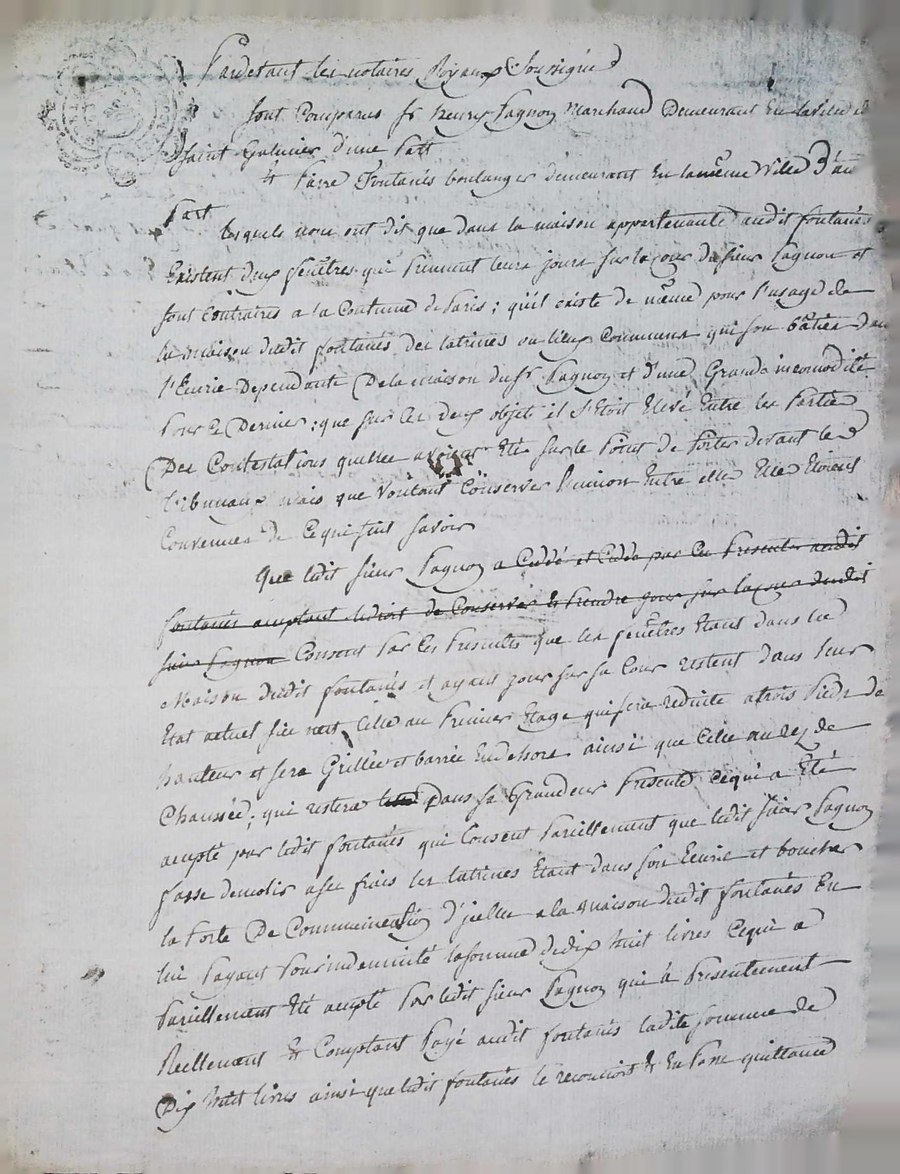 Pardevant les notaires Royaux Soussignés
sont Comparus sr henry Pagnon Marchand Demeurant En la ville de
Saint Galmier d'une Part
& Pierre Fontanés boulanger demeurant En la même Ville D'au
Part
lesquels nous ont dit que dans la maison appartenante audit fontanés
Existent deux fenêtres qui Prennent leurs jours sur la cour du sieur Pagnon et
sont Contraires a la Coutume de Paris ; qu'il existe de même pour l'usage de
la maison dudit fontanés des latrines ou lieux Communs qui son bâties dans
l'Ecurie Dependante De la maison du sr Pagnon et d'une Grande incomodité
Pour ce Dernier : que sur ces deux objet il s'Etoit Elevé Entre les Partie
Des Contestations quelles avoient Eté sur le Point de Porter devant les
tribunaux mais que Voulant Conserver l'union Entre elle Elle Etoient
Convenues de Ce qui suit savoir
Que ledit sieur Pagnon a Cédé et Cede par Ces Presentes audit
fontanés acceptant le droit de Conserver & Prendre jour sur la cour dudit
sieur Pagnon Consent Par Ces Presentes que les fenêtres Etant dans la
Maison dudit fontanés et ayant jour sur sa Cour restent dans leur
Etat actuel si ce n'est Celle au Premier Etage qui sera reduite a trois Pieds de
hauteur et sera Grillée et barrée En dehors ainsi que Celle au rez de
Chaussée ; qui restera dans sa Grandeur Presente Ce qui a Eté
accepté par ledit fontanés qui Consent Pareillement que ledit sieur Pagnon
fasse demolir a ses frais les latrines Etant dans son Ecurie et boucher
la Porte De Communication d'icelle a la maison dudit fontanés En
lui Payant Pour indemnité la somme de dix huit livres Ce qui a
Pareillement Eté accepté Par ledit sieur Pagnon qui a Presentement
Reellement & Comptant Payé audit fontanés ladite somme de
Dix huit livres ainsi que ledit fontanés le reconnoit & En Passe quittance